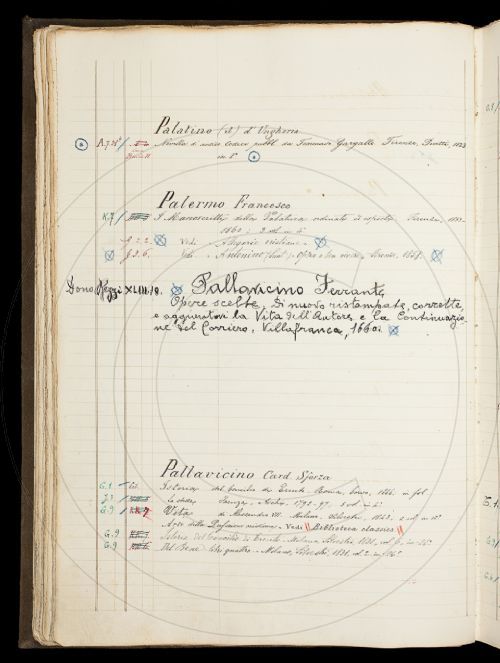 Palatino (il) d'Ungheria
Novella d'antico Codice pubbl. da Francesco Gargalle. Firenze, Piatti, 1823
in 8°
Palermo Francesco
K.7 I Manoscritti della Palatina ordinati ed esposti. Firenze, 1853-
1860; 2 vol. in 4°
Vedi Allegorie cristiane.
J.3.6. Vedi Antonino (Sant') Opera a ben vivere, Firenze, 1858.
Dono Reggi XLIII/8. Pallavicino Ferrante
Opere scelte, Di nuovo ristampate, corrette,
e aggiuntovi la Vita dell'Autore e la Continuazio-
ne del Corriero. Villafranca, 1660.
Pallavicino Card. Sforza
G.1 Istoria del Concilio di Trento. Roma, 1846. in fol.
J.1 La stessa Faenza, 1792-97. 5 vol. in 4°
G.9 Vita di Alessandro VII. Milano, Silvestri, 1843. 2 vol. in 16°
Arte della Perfezione cristiana. Vedi Biblioteca classica
G.9 Istoria del Concilio di Trento. Milano, Silvestri, 1831. vol. in 16°
G.9 Del Bene libri quattro. Milano, Silvestri, 1831. vol. 2. in 16°